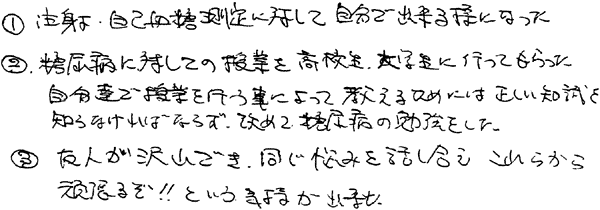 ① 注射、自己血糖測定に対して自分で出来る様になった
②、糖尿病に対しての授業を高校生、大学生に行ってもらった
自分達で授業を行う事によって教えるためには正しい知識を
知らなければならず、改めて糖尿病の勉強をした。
③ 友人が沢山でき、同じ悩みを話し合え これらから
頑張るぞ!! という気持が出来た